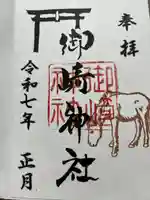 奉拝
御崎神社
令和七年
正月